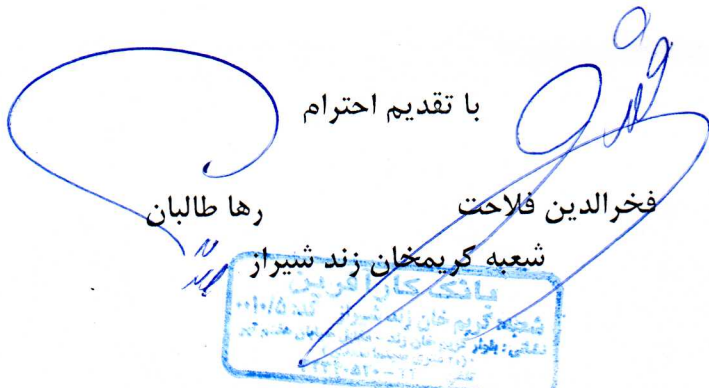 با تقدیم احترام
فخرالدین فلاحت رها طالبان
شعبه کریمخان زند شیراز
بانک کارآفرین
شعبه: کریم خان زند شیراز
نشانی: بلوار کریم خان زند